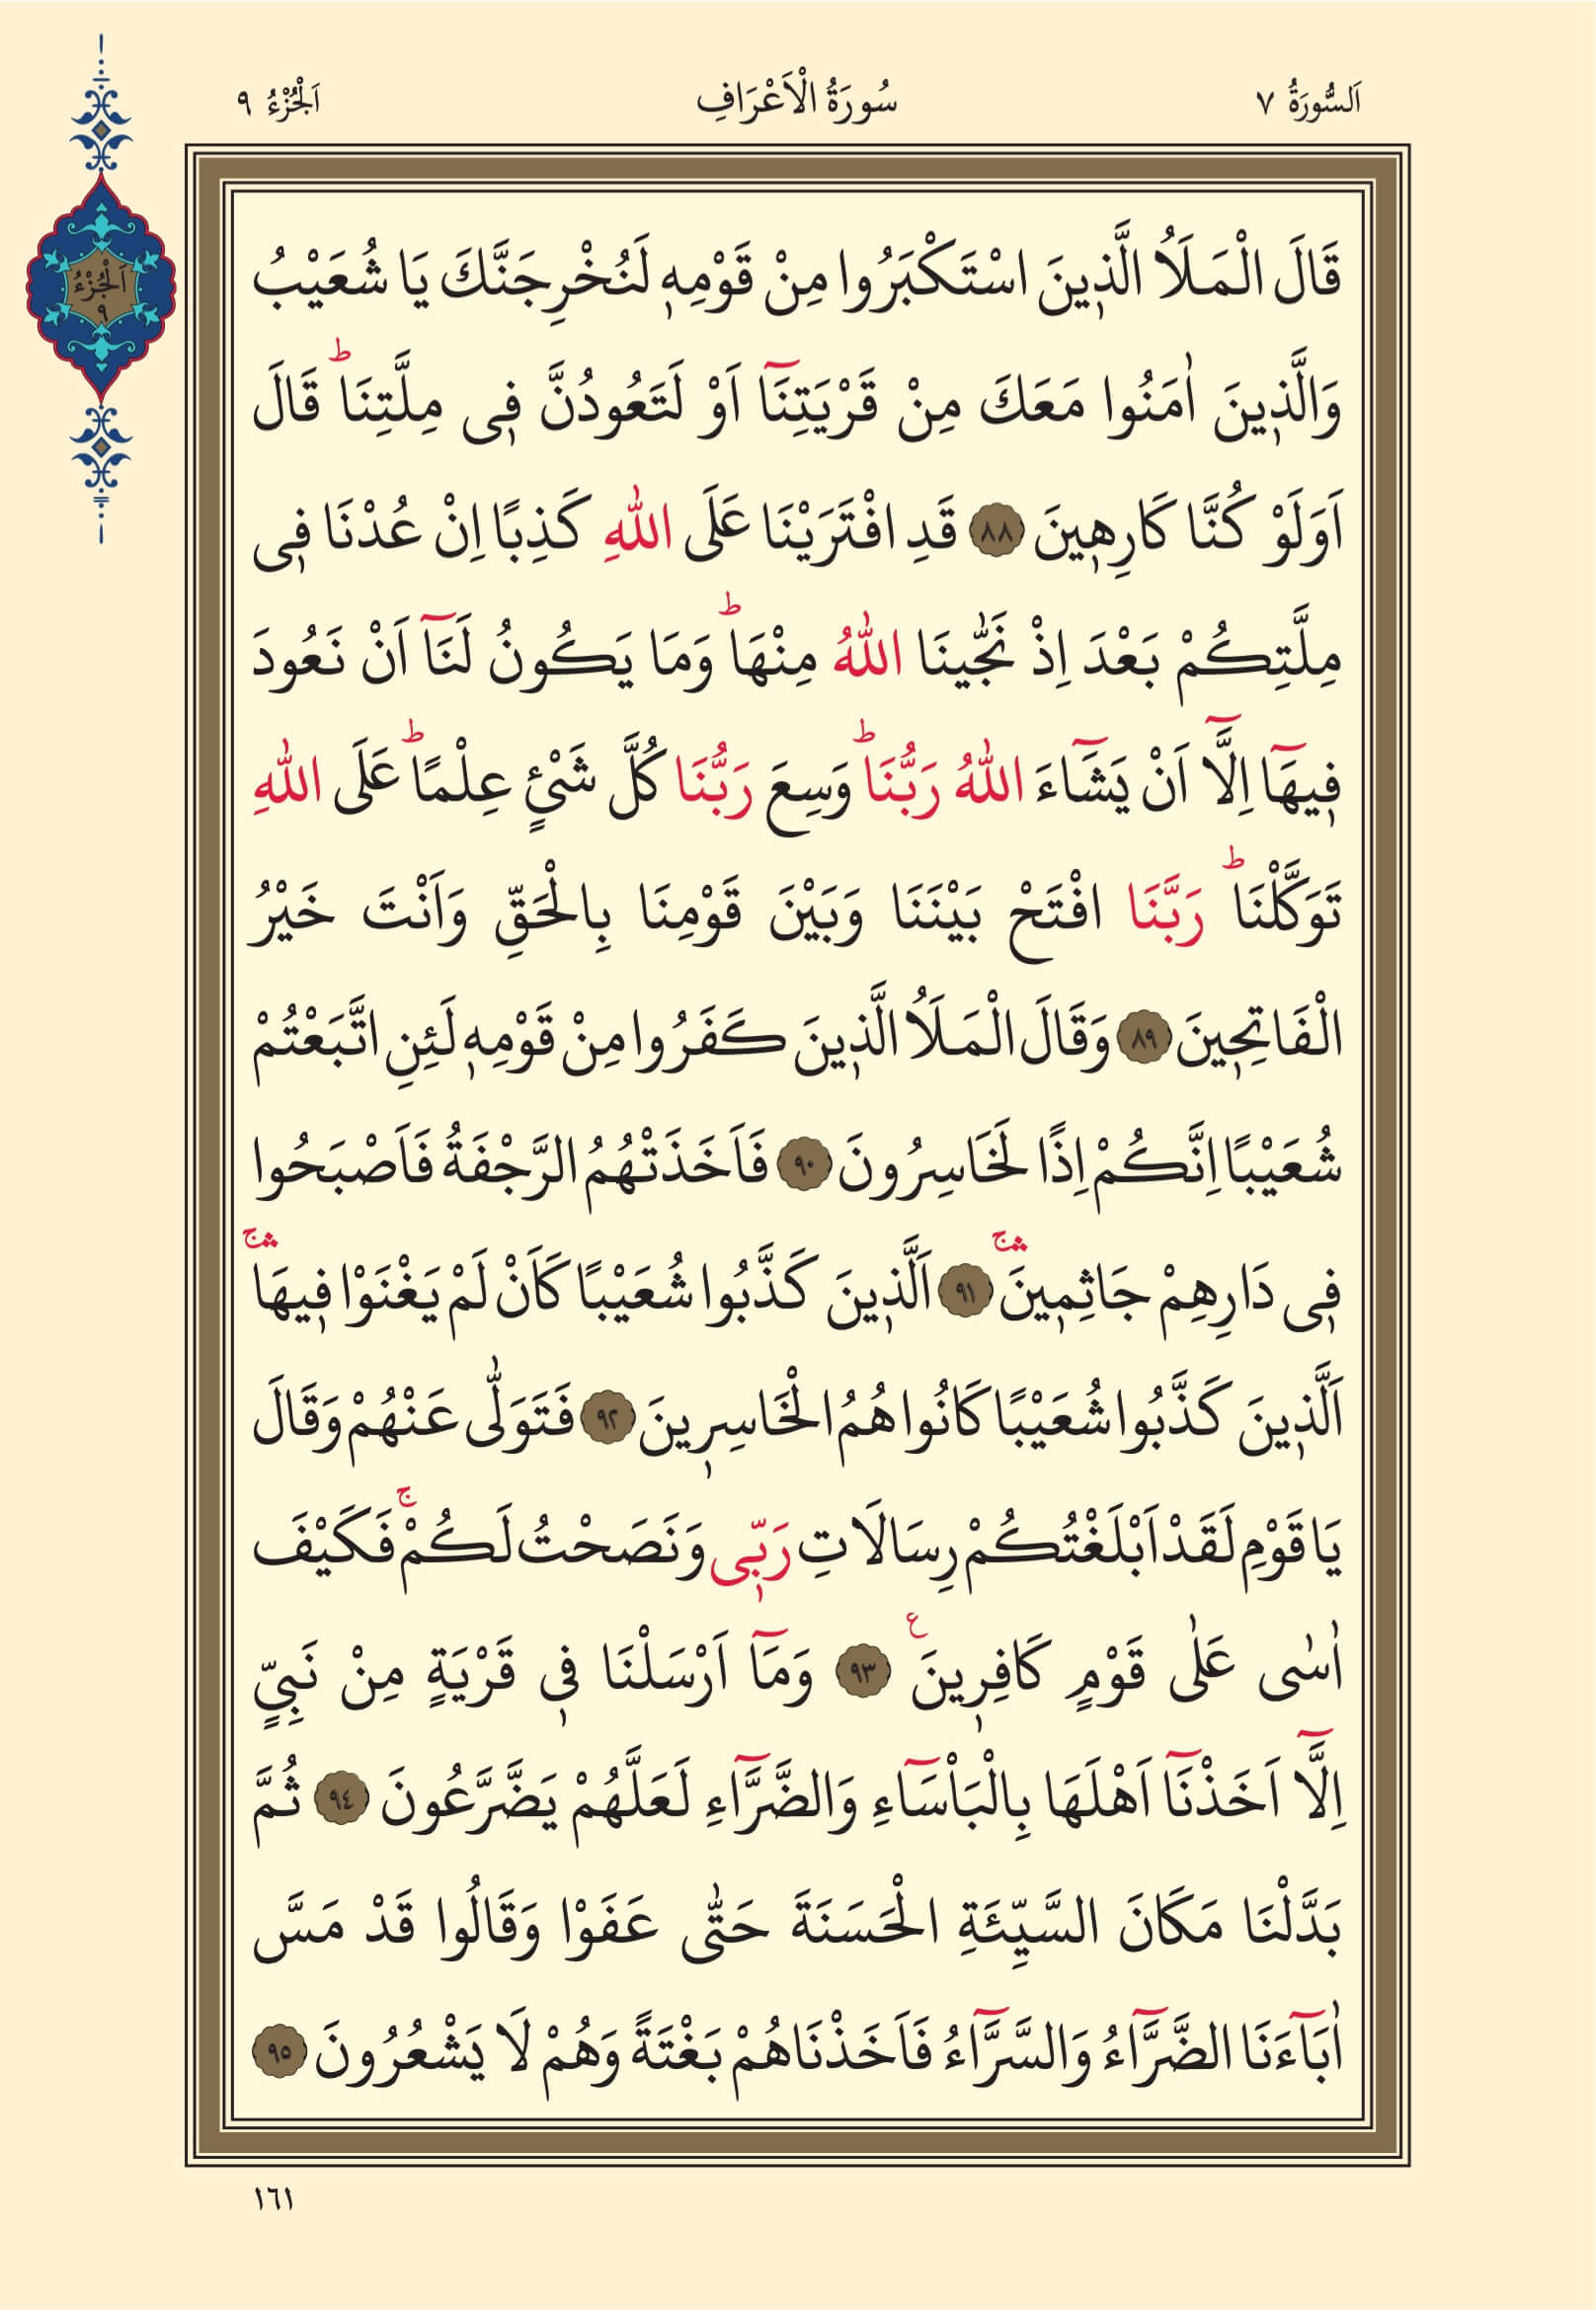 اَلسُّورَةُ ٧ سُورَةُ الْاَعْرَافِ اَلْجُزْءُ ٩
اَلْجُزْءُ
٩
قَالَ الْمَلَاُ الَّذٖينَ اسْتَكْبَرُوا مِنْ قَوْمِهٖ لَنُخْرِجَنَّكَ يَا شُعَيْبُ
وَالَّذٖينَ اٰمَنُوا مَعَكَ مِنْ قَرْيَتِنَآ اَوْ لَتَعُودُنَّ فٖى مِلَّتِنَاؕ قَالَ
اَوَلَوْ كُنَّا كَارِهٖينَ ٨٨ قَدِ افْتَرَيْنَا عَلَى اللّٰهِ كَذِبًا اِنْ عُدْنَا فٖى
مِلَّتِكُمْ بَعْدَ اِذْ نَجّٰينَا اللّٰهُ مِنْهَاؕ وَمَا يَكُونُ لَنَآ اَنْ نَعُودَ
فٖيهَآ اِلَّآ اَنْ يَشَآءَ اللّٰهُ رَبُّنَاؕ وَسِعَ رَبُّنَا كُلَّ شَىْءٍ عِلْمًاؕ عَلَى اللّٰهِ
تَوَكَّلْنَاؕ رَبَّنَا افْتَحْ بَيْنَنَا وَبَيْنَ قَوْمِنَا بِالْحَقِّ وَاَنْتَ خَيْرُ
الْفَاتِحٖينَ ٨٩ وَقَالَ الْمَلَاُ الَّذٖينَ كَفَرُوا مِنْ قَوْمِهٖ لَئِنِ اتَّبَعْتُمْ
شُعَيْبًا اِنَّكُمْ اِذًا لَخَاسِرُونَ ٩٠ فَاَخَذَتْهُمُ الرَّجْفَةُ فَاَصْبَحُوا
فٖى دَارِهِمْ جَاثِمٖينَۛۚ ٩١ اَلَّذٖينَ كَذَّبُوا شُعَيْبًا كَاَنْ لَمْ يَغْنَوْا فٖيهَاۛۚ
اَلَّذٖينَ كَذَّبُوا شُعَيْبًا كَانُوا هُمُ الْخَاسِرٖينَ ٩٢ فَتَوَلّٰى عَنْهُمْ وَقَالَ
يَا قَوْمِ لَقَدْ اَبْلَغْتُكُمْ رِسَالَاتِ رَبّٖى وَنَصَحْتُ لَكُمْۚ فَكَيْفَ
اٰسٰى عَلٰى قَوْمٍ كَافِرٖينَ ع ٩٣ وَمَآ اَرْسَلْنَا فٖى قَرْيَةٍ مِنْ نَبِىٍّ
اِلَّآ اَخَذْنَآ اَهْلَهَا بِالْبَاْسَآءِ وَالضَّرَّآءِ لَعَلَّهُمْ يَضَّرَّعُونَ ٩٤ ثُمَّ
بَدَّلْنَا مَكَانَ السَّيِّئَةِ الْحَسَنَةَ حَتّٰى عَفَوْا وَقَالُوا قَدْ مَسَّ
اٰبَآءَنَا الضَّرَّآءُ وَالسَّرَّآءُ فَاَخَذْنَاهُمْ بَغْتَةً وَهُمْ لَا يَشْعُرُونَ ٩٥
١٦١